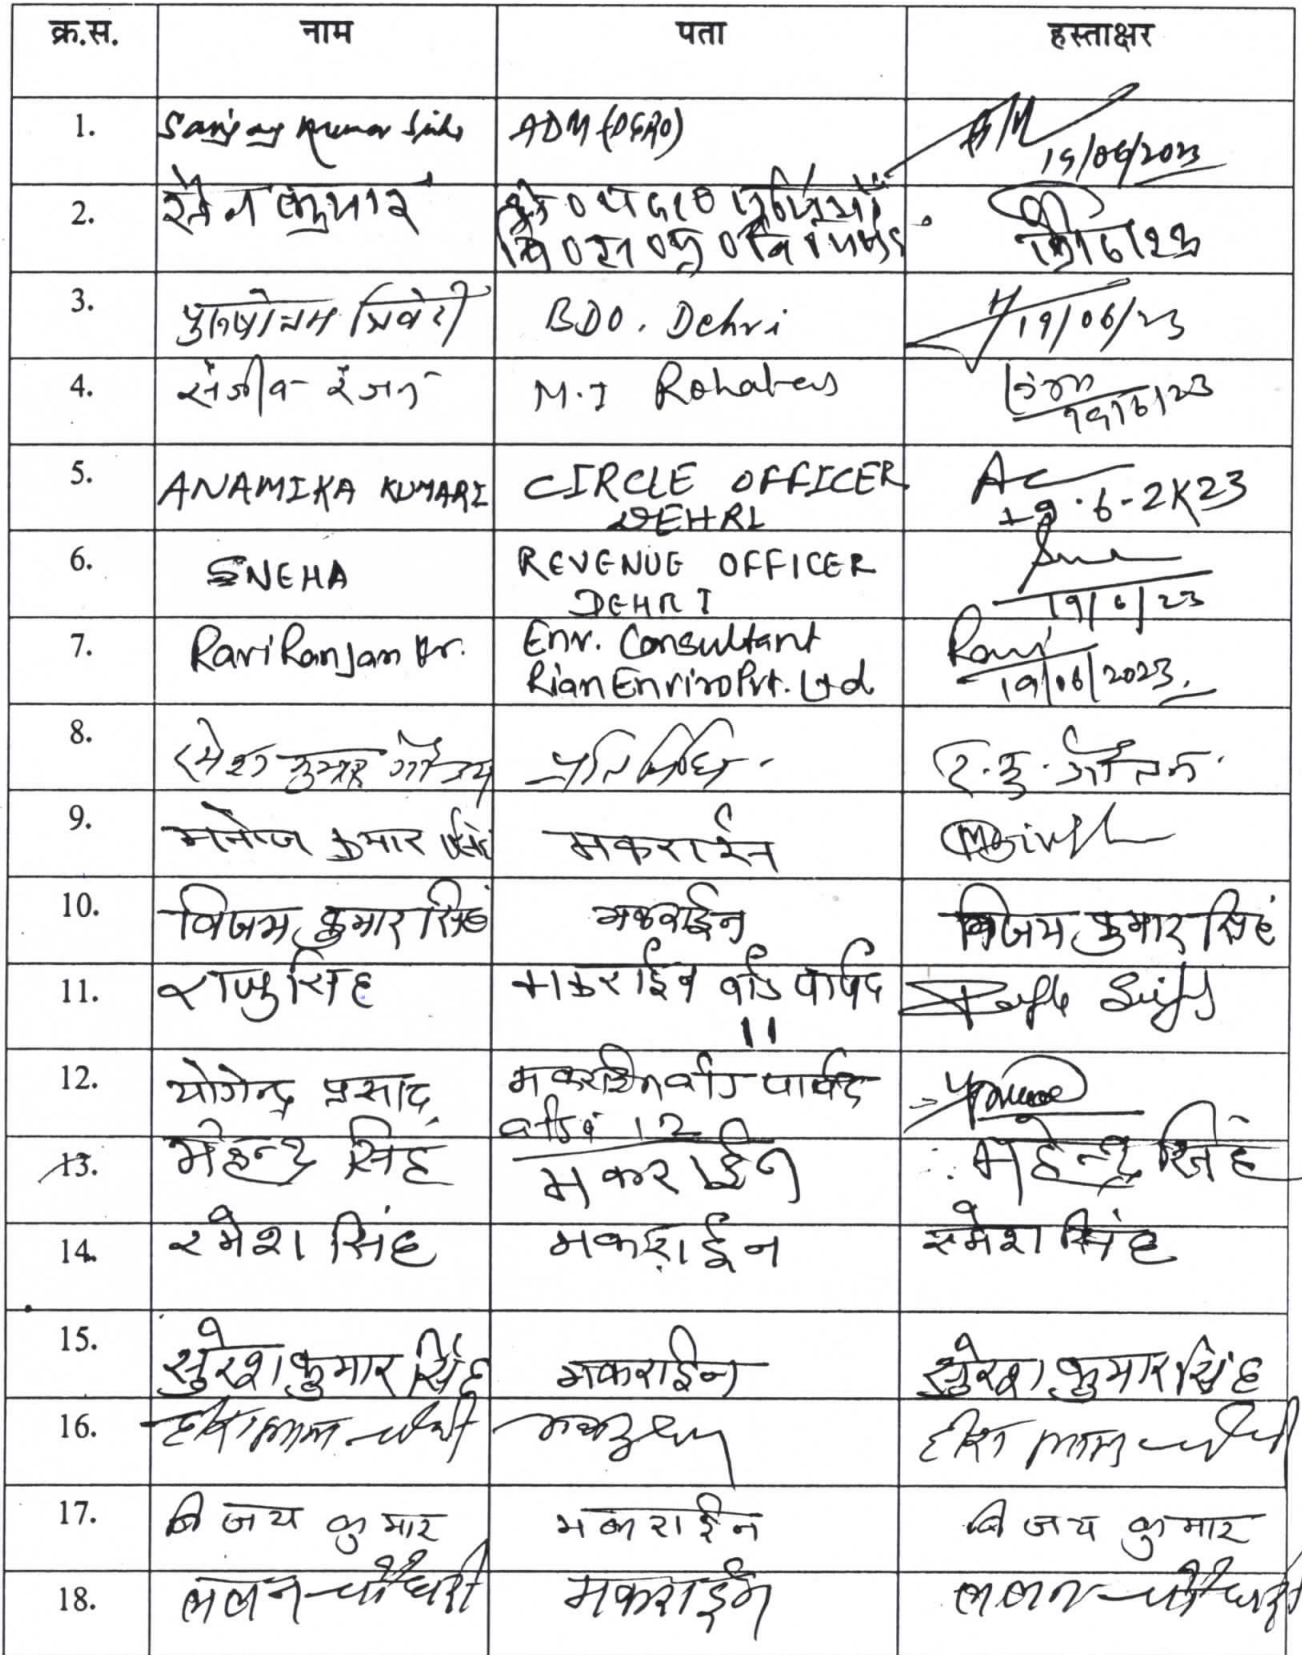 क्र.स. नाम पता हस्ताक्षर
1. Sanjay Kumar ADM 19/06/2023
2. कुमार
3. त्रिवेदी BDO. Dehri 19/06/23
4. संजीव रंजन M.I 19/6/23
5. ANAMIKA KUMARI CIRCLE OFFICER
DEHRI 19.6-2K23
6. SNEHA REVENUE OFFICER
DEHRI 19/6/23
7. Ravi Ranjan Kr. Env. Consultant Ravi
Rian Enviro Pvt. Ltd 19/06/2023.
8. रमेश कुमार गौतम प्रतिनिधि. र.कु.गौतम.
9. मनोज कुमार सिंह मकराईन MSingh
10. विजय कुमार सिंह मकराईन विजय कुमार सिंह
11. राजु सिंह मकराईन वार्ड पार्षद Singh
11
12. योगेन्द्र प्रसाद मकराईन वार्ड पार्षद
12
13. महेन्द्र सिंह मकराईन महेन्द्र सिंह
14. रमेश सिंह मकराईन रमेश सिंह
15. सुरेश कुमार सिंह मकराईन सुरेश कुमार सिंह
16.
17. विजय कुमार मकराईन विजय कुमार
18. ललन चौधरी मकराईन ललन चौधरी